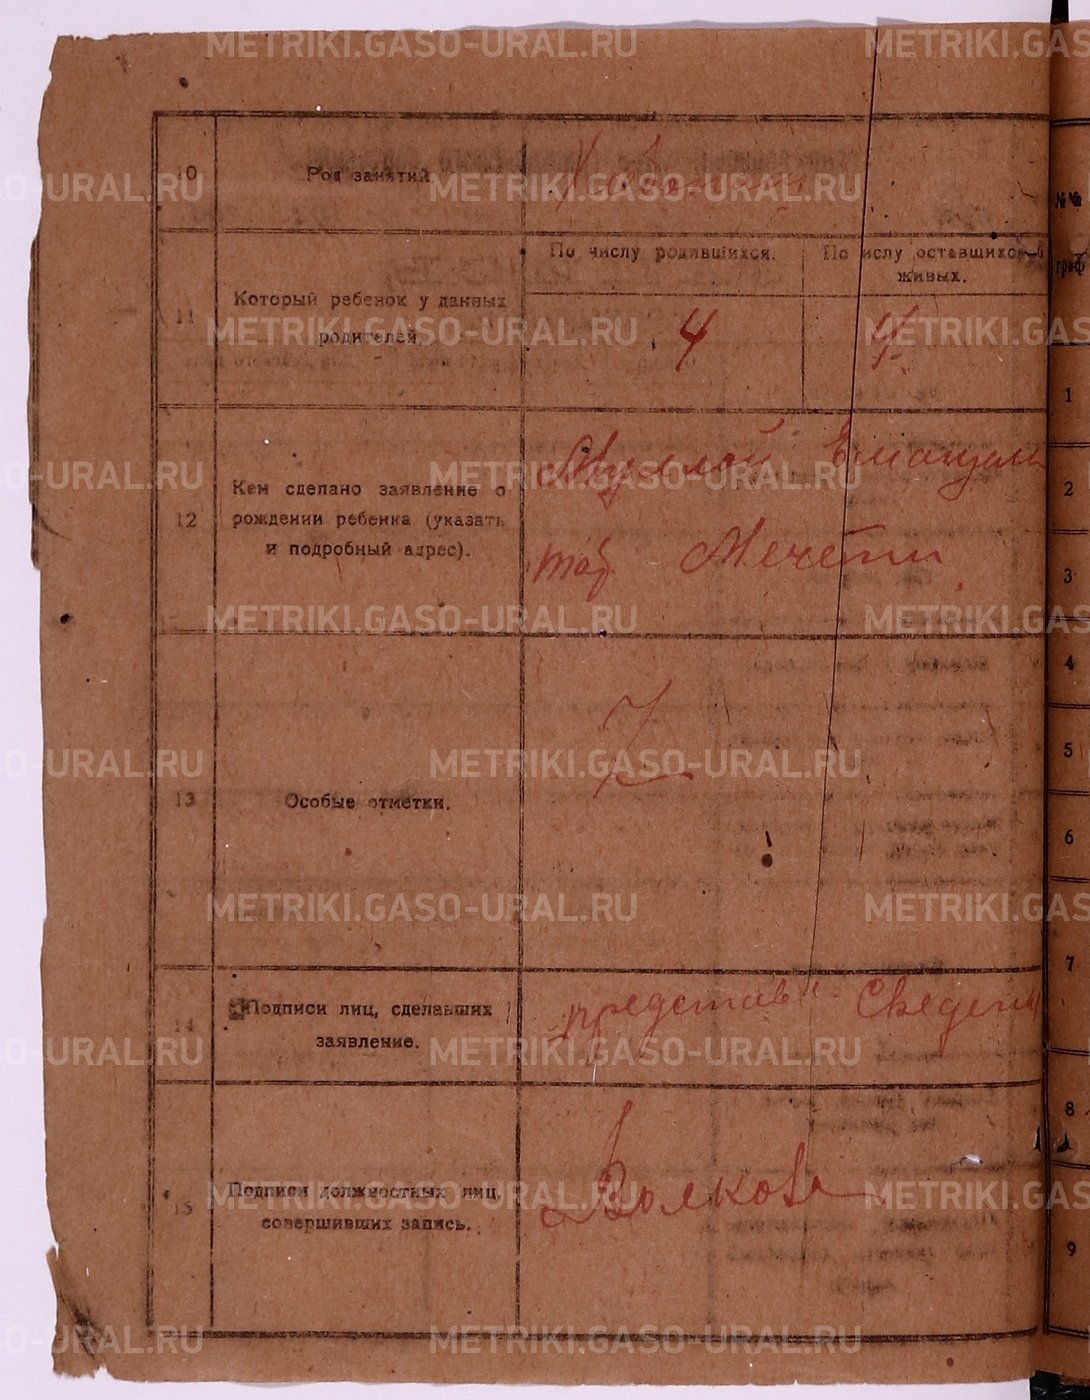 METRIKI.GASO-URAL.RU
10 Род занятий
11 Который ребенок у данных
родителей.
По числу родившихся.
По числу оставшихся в
живых.
4
4
12 Кем сделано заявление о
рождении ребенка (указать
и подробный адрес).
Муллой
Мечети
13 Особые отметки.
14 Подписи лиц, сделавших
заявление.
представл. Сведени
15 Подписи должностных лиц,
совершивших запись.
Волков
№№
граф
1
2
3
4
5
6
7
8
9